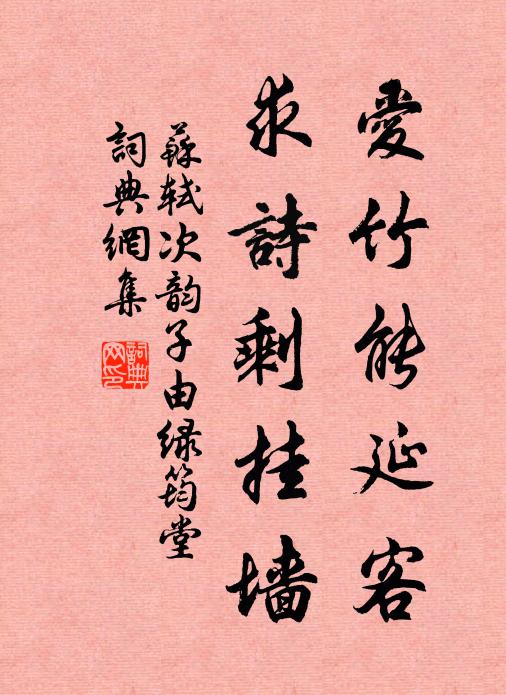 愛竹能延客
求詩剩挂墻
蘇軾次韵子由緑筠堂
詞典網集
詞典網印